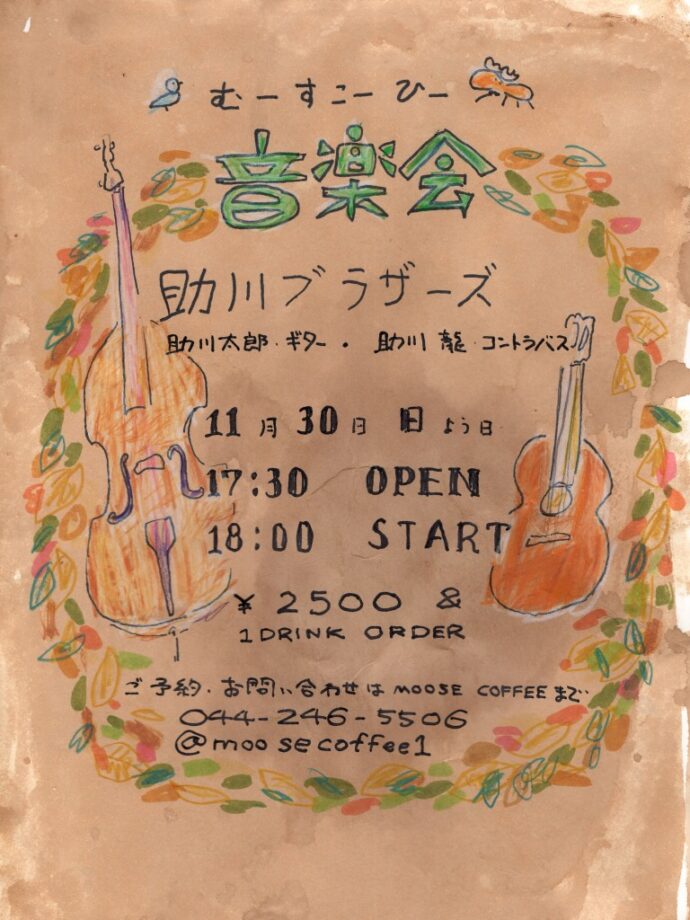 むーすこーひー
音楽会
助川ブラザーズ
助川太郎・ギター・助川 龍・コントラバス
11月30日 日よう日
17:30 OPEN
18:00 START
¥2500 &
1 DRINK ORDER
ご予約・お問い合わせは MOOSE COFFEEまで
044-246-5506
@moosecoffee1